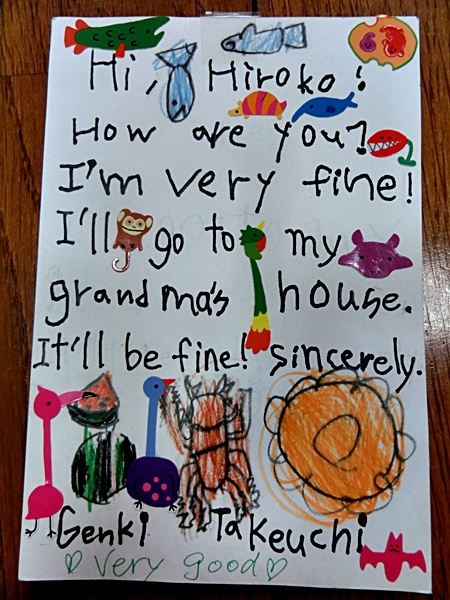 Hi, Hiroko!
How are you?
I'm very fine!
I'll go to my
grandma's house.
It'll be fine! sincerely.
Genki Takeuchi
♡ very good ♡